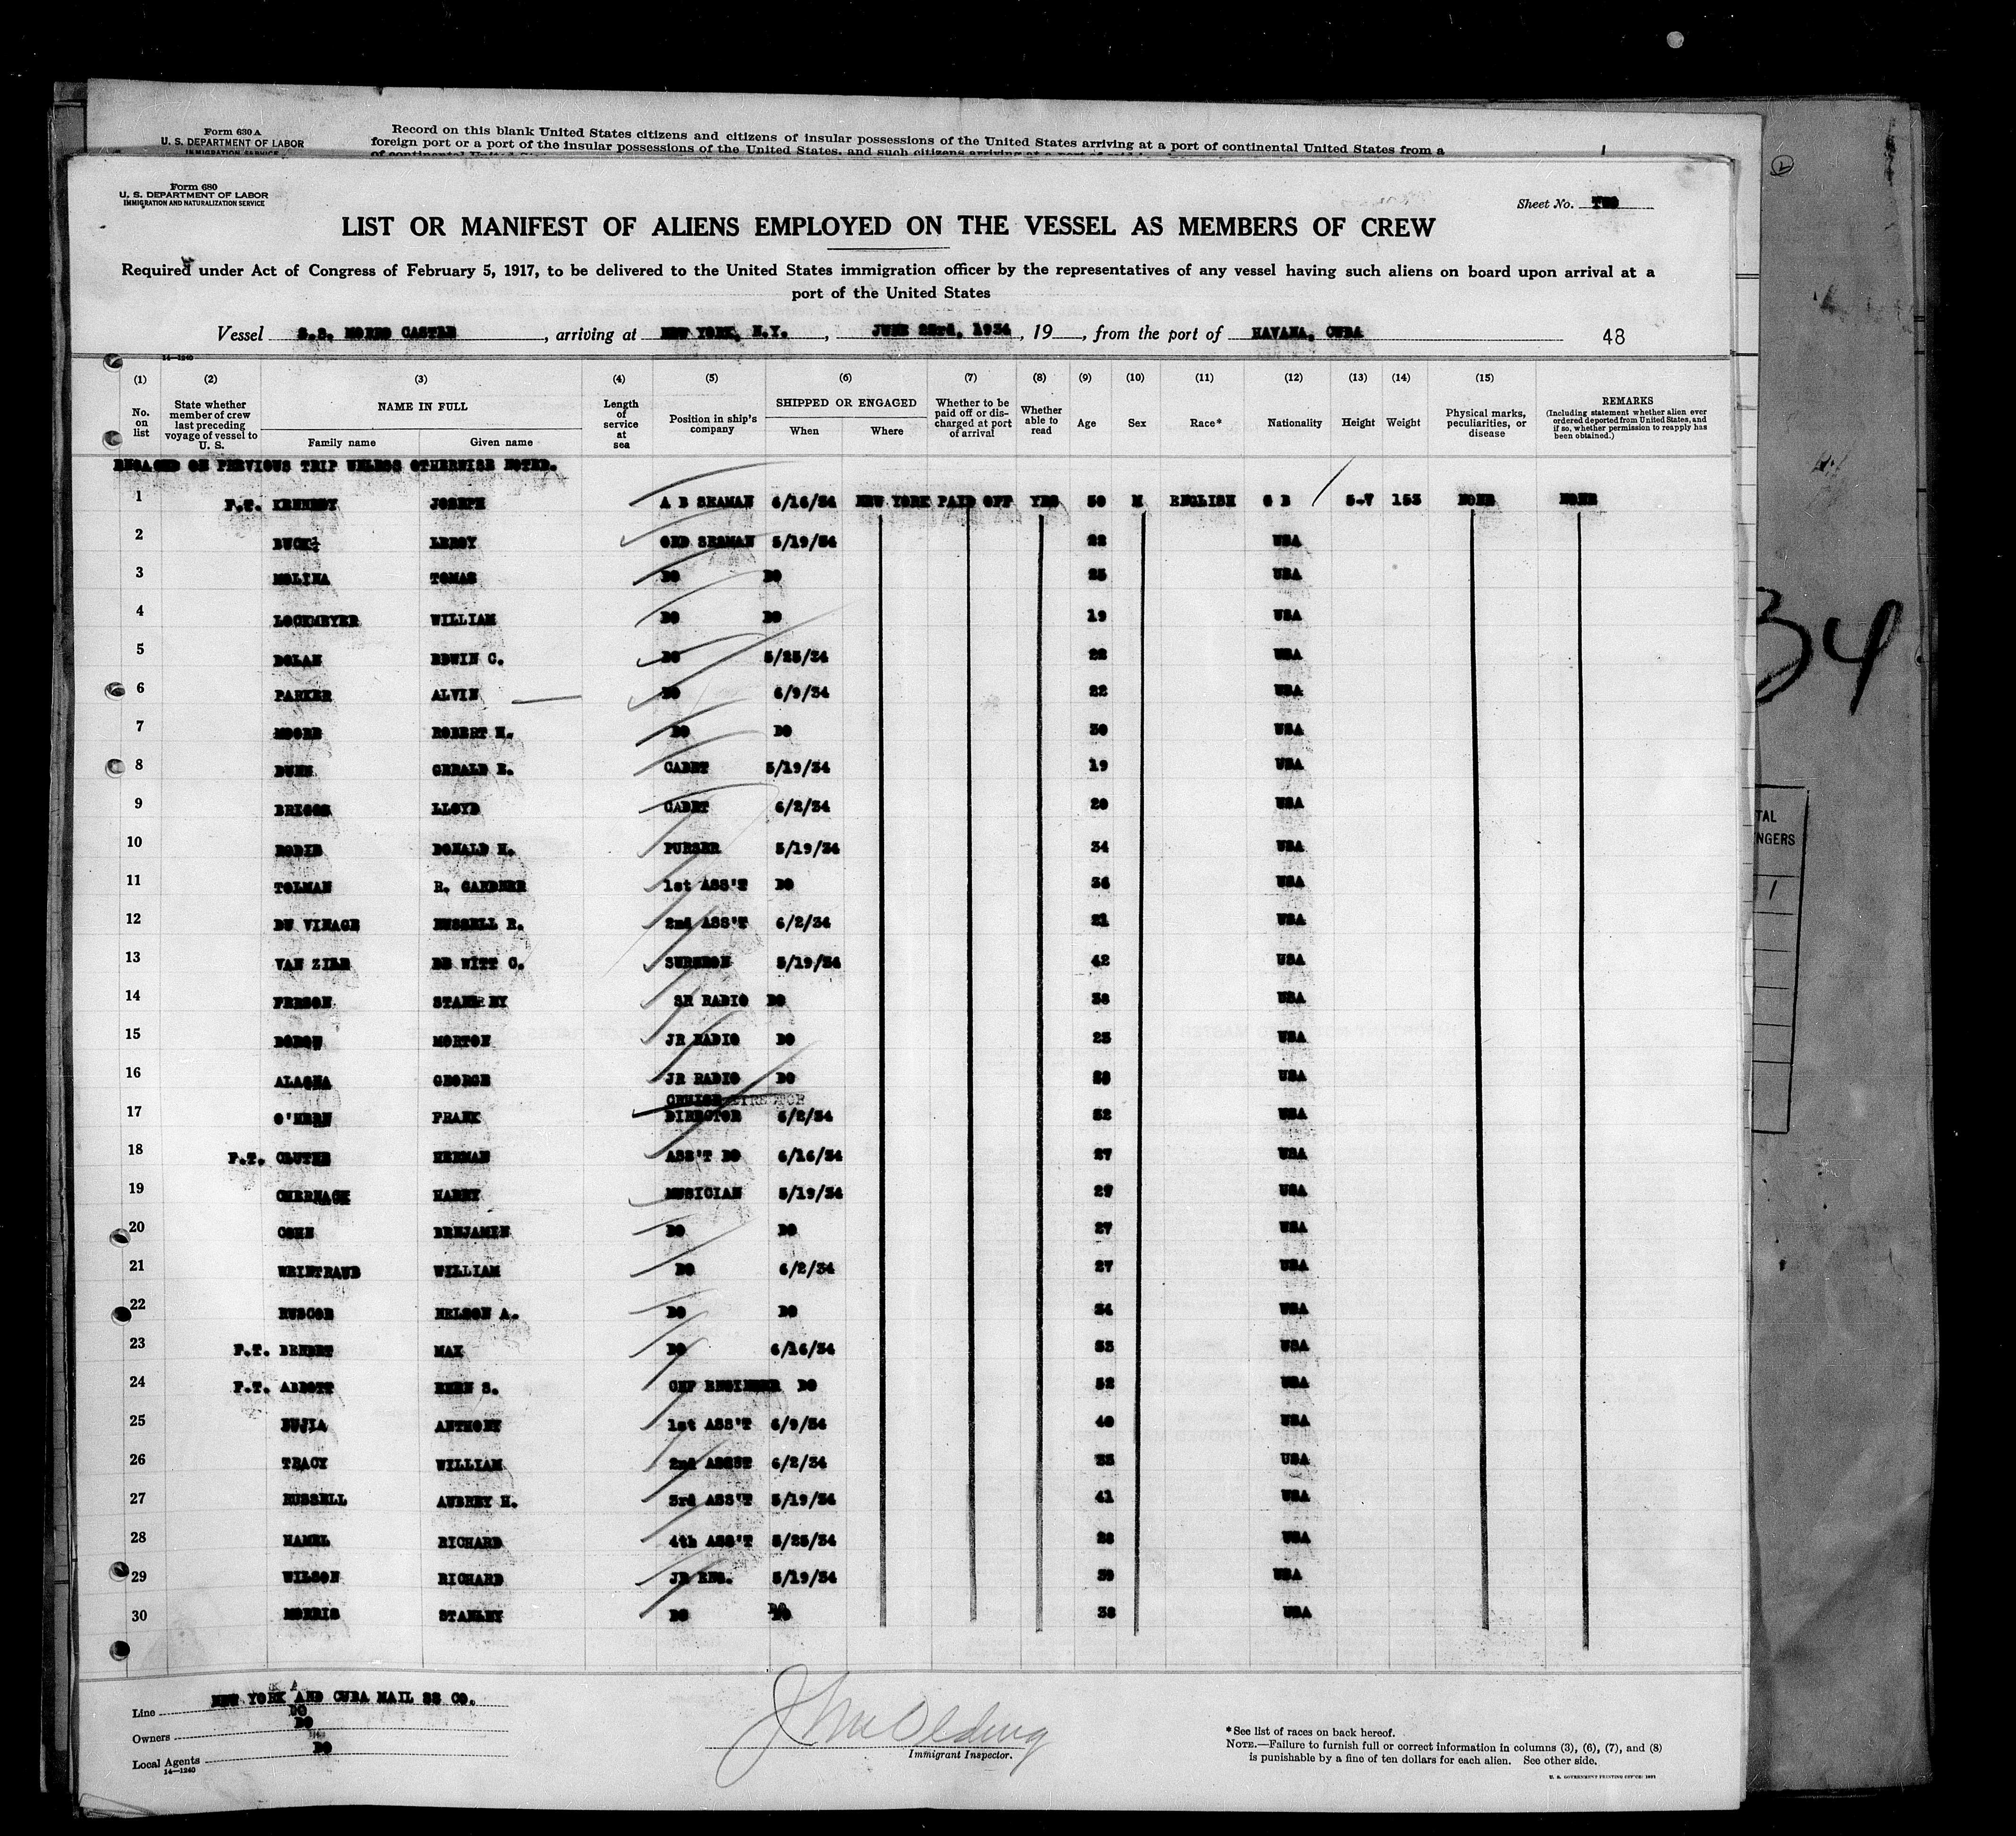 Form 630 A
U. S. DEPARTMENT OF LABOR
IMMIGRATION SERVICE
Record on this blank United States citizens and citizens of insular possessions of the United States arriving at a port of continental United States from a
foreign port or a port of the insular possessions of the United States, and such citizens arriving at a port of
Form 680
U. S. DEPARTMENT OF LABOR
IMMIGRATION AND NATURALIZATION SERVICE
Sheet No. TWO
LIST OR MANIFEST OF ALIENS EMPLOYED ON THE VESSEL AS MEMBERS OF CREW
Required under Act of Congress of February 5, 1917, to be delivered to the United States immigration officer by the representatives of any vessel having such aliens on board upon arrival at a
port of the United States
Vessel S.S. MORRO CASTLE, arriving at NEW YORK, N.Y., JUNE 23rd, 1934, 19, from the port of HAVANA, CUBA 48
14—1240
(1) (2) (3) (4) (5) (6) (7) (8) (9) (10) (11) (12) (13) (14) (15)
No. on list
State whether member of crew last preceding voyage of vessel to U. S.
NAME IN FULL
Family name Given name
Length of service at sea
Position in ship's company
SHIPPED OR ENGAGED
When Where
Whether to be paid off or discharged at port of arrival
Whether able to read
Age
Sex
Race*
Nationality
Height
Weight
Physical marks, peculiarities, or disease
REMARKS
(Including statement whether alien ever ordered deported from United States, and if so, whether permission to reapply has been obtained.)
ENGAGED ON PERVIOUS TRIP UNLESS OTHERWISE NOTED.
1 F.T. KENNEDY JOSEPH A B SEAMAN 6/16/34 NEW YORK PAID OFF YES 30 M ENGLISH G B 5-7 153 NONE NONE
2 BUCK LEROY ORD SEAMAN 5/19/34 22 USA
3 MOLINA TOMAS DO DO 25 USA
4 LOCKMEYER WILLIAM DO DO 19 USA
5 DOLAN EDWIN C. DO 5/25/34 22 USA
6 PARKER ALVIN DO 6/9/34 22 USA
7 MOORE ROBERT H. DO DO 30 USA
8 DUNN GERALD E. CADET 5/19/34 19 USA
9 BRIGGS LLOYD CADET 6/2/34 20 USA
10 RODIE DONALD H. PURSER 5/19/34 34 USA
11 TOLMAN R. GARDNER 1st ASS'T DO 36 USA
12 DU VINAGE RUSSELL R. 2nd ASS'T 6/2/34 21 USA
13 VAN ZILE DE WITT C. SURGEON 5/19/34 42 USA
14 FERSON STANLEY SR RADIO DO 38 USA
15 BOROW MORTON JR RADIO DO 23 USA
16 ALAGNA GEORGE JR RADIO DO USA
CRUISE DIRECTOR
17 O'HERN FRANK DIRECTOR 6/2/34 52 USA
18 F.T. CLUTHE HERMAN ASS'T DO 6/16/34 27 USA
19 CHERNACK HARRY MUSICIAN 5/19/34 29 USA
20 COHN BENJAMIN DO DO 27 USA
21 WEINTRAUB WILLIAM DO 6/2/34 27 USA
22 RUSCOE NELSON A. DO DO 34 USA
23 F.T. BENDET MAX DO 6/16/34 53 USA
24 F.T. ABBOTT EBEN S. CHF ENGINEER DO 52 USA
25 BUJIA ANTHONY 1st ASS'T 6/9/34 40 USA
26 TRACY WILLIAM 2nd ASSST 6/2/34 35 USA
27 RUSSELL AUBREY H. 3rd ASS'T 5/19/34 41 USA
28 HAMEL RICHARD 4th ASS'T 5/25/34 28 USA
29 WILSON RICHARD JR ENG. 5/19/34 39 USA
30 MORRIS STANLEY DO DO 38 USA
Line NEW YORK AND CUBA MAIL SS CO.
Owners DO
Local Agents DO
14—1240
Immigrant Inspector.
*See list of races on back hereof.
NOTE.—Failure to furnish full or correct information in columns (3), (6), (7), and (8)
is punishable by a fine of ten dollars for each alien. See other side.
U. S. GOVERNMENT PRINTING OFFICE: 1931
34
TAL
NGERS
1